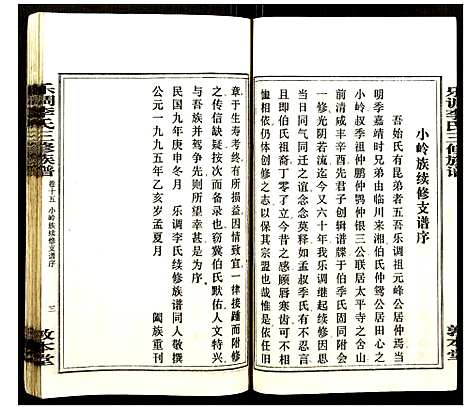 乐调李氏三修族谱
敦本堂
小岭族续修支谱序
吾始氏有昆弟者五吾乐调祖元峰公居仲焉当
明季嘉靖时兄弟由临川来湘伯氏仲鸳公居田心之
小岭叔季祖仲鹏仲鹗仲钟三公联居太平寺之含山
前清咸丰辛酉先君子创辑谱牒于伯季氏固同附会
一修光阴若流迄今又六十年我乐调继起续修因念
当日同气同迁之谊前既合修今忍独异孟叔季氏于
是且即伯氏祖啇门求了立今昔之感顾唇寒齿可不
恤相与依仍体创修之志以保其宗盟也哉惟是依任旧
章于生寿考终有所损益因情有一律接踵而附修
之传信缺疑按次而备录也窃冀伯氏默佑人文特兴
与吾族并驾争先则所望幸甚是为序
民国九年庚申冬月 乐调李氏续修族谱同人敬撰
公元一九九五年乙亥岁孟夏月 阖族重刊
乐调李氏三修族谱
卷十五 小岭族续修支谱序
三
敦本堂